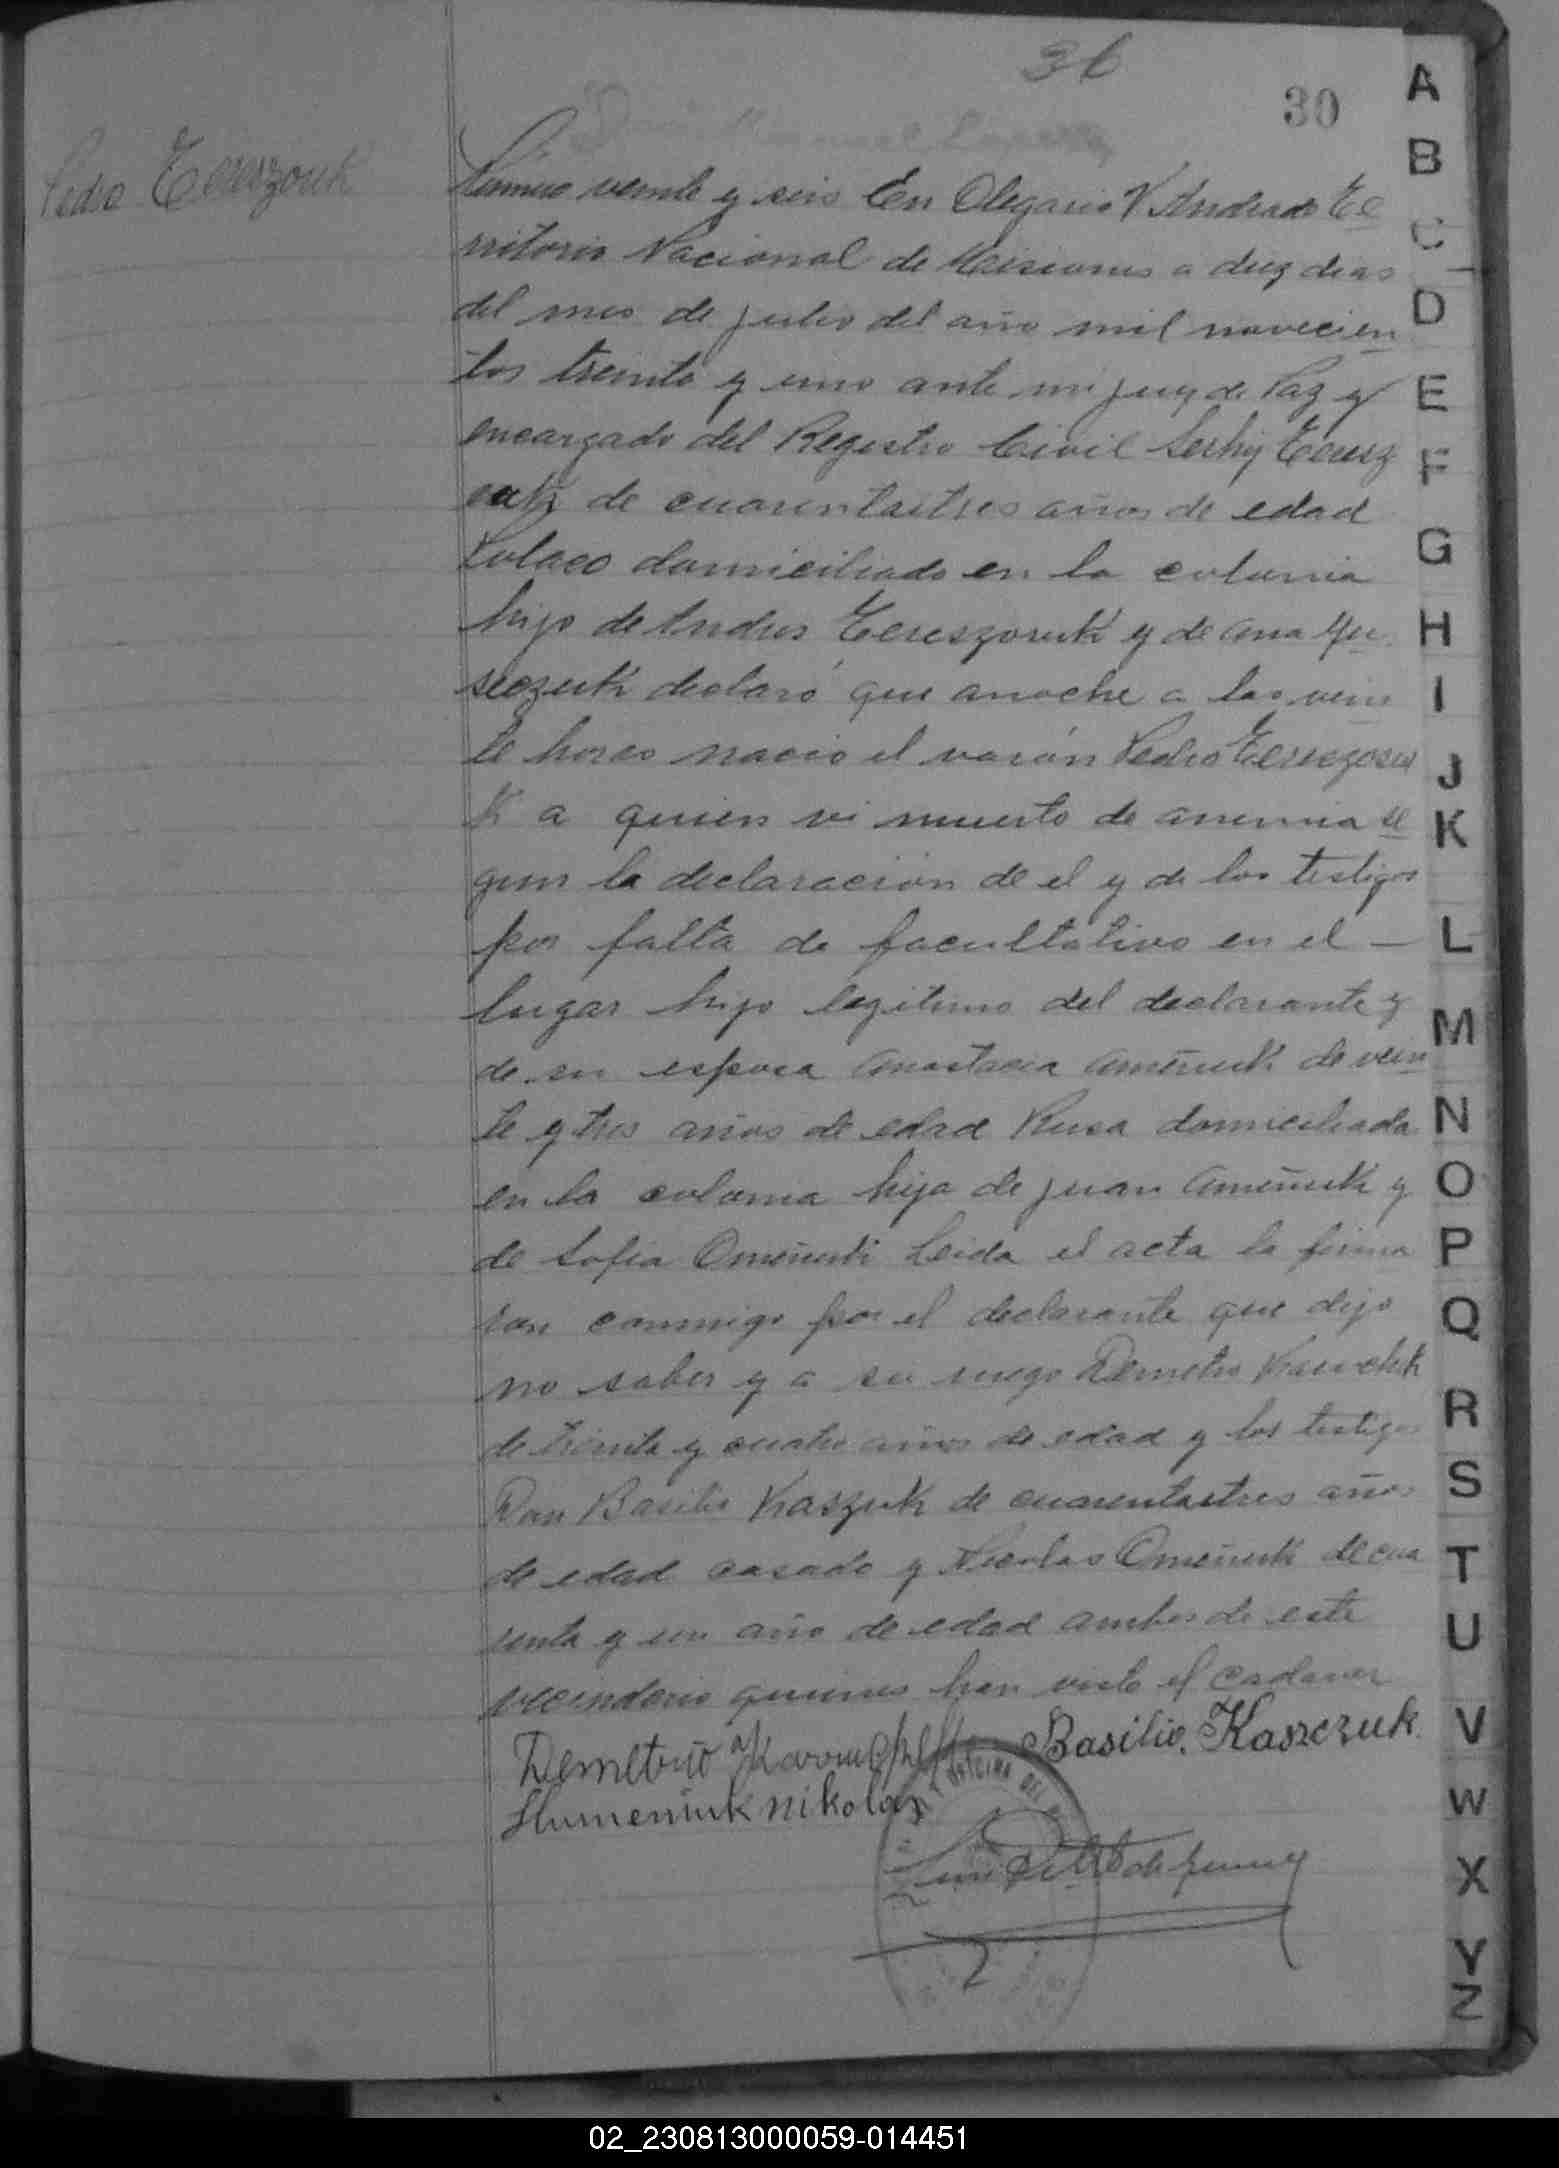 36
30
Pedro Tereszouk
Número veinte y seis En Olegario V. Andrade Te
rritorio Nacional de Misiones a diez dias
del mes de julio del año mil novecien
tos treinta y uno ante mi juez de Paz y
encargado del Registro Civil Serhij Teresz
de cuarentaitres años de edad
Polaco domiciliado en la colonia
hijo de Andres Tereszouk y de Ana
declaró que anoche a las vein
te horas nacio el varón Pedro Tereszou
k a quien vi muerto de anemia se
gun la declaración de el y de los testigos
por falta de facultativo en el
lugar hijo legitimo del declarante y
de su esposa Anastacia Ameniuk de vein
te y tres años de edad Rusa domiciliada
en la colonia hija de Juan Ameniuk y
de Sofia Omeniuk Leida el acta la firma
ron conmigo por el declarante que dijo
no saber y a su ruego Demetrio
de treinta y cuatro años de edad y los testigos
Don Basilio Kaszuk de cuarentaitres años
de edad casado y Nicolas Omeniuk de cua
renta y un año de edad ambos de este
vecindario quienes han visto el cadaver
Demetrio
Basilio. Kaszczuk.
Humeniuk nikolaj
OFICINA DEL
A
B
C
D
E
F
G
H
I
J
K
L
M
N
O
P
Q
R
S
T
U
V
W
X
Y
Z
02_230813000059-014451